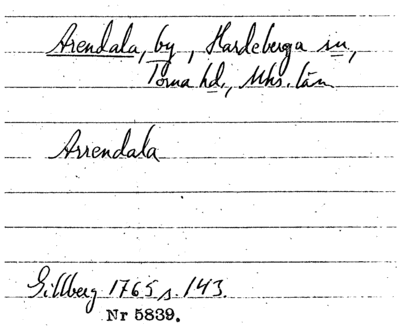 Arendala, by, Hardeberga sn,
Torna hd., Mhs. län
Arrendala
Gillberg 1765 s. 143.
Nr 5839.